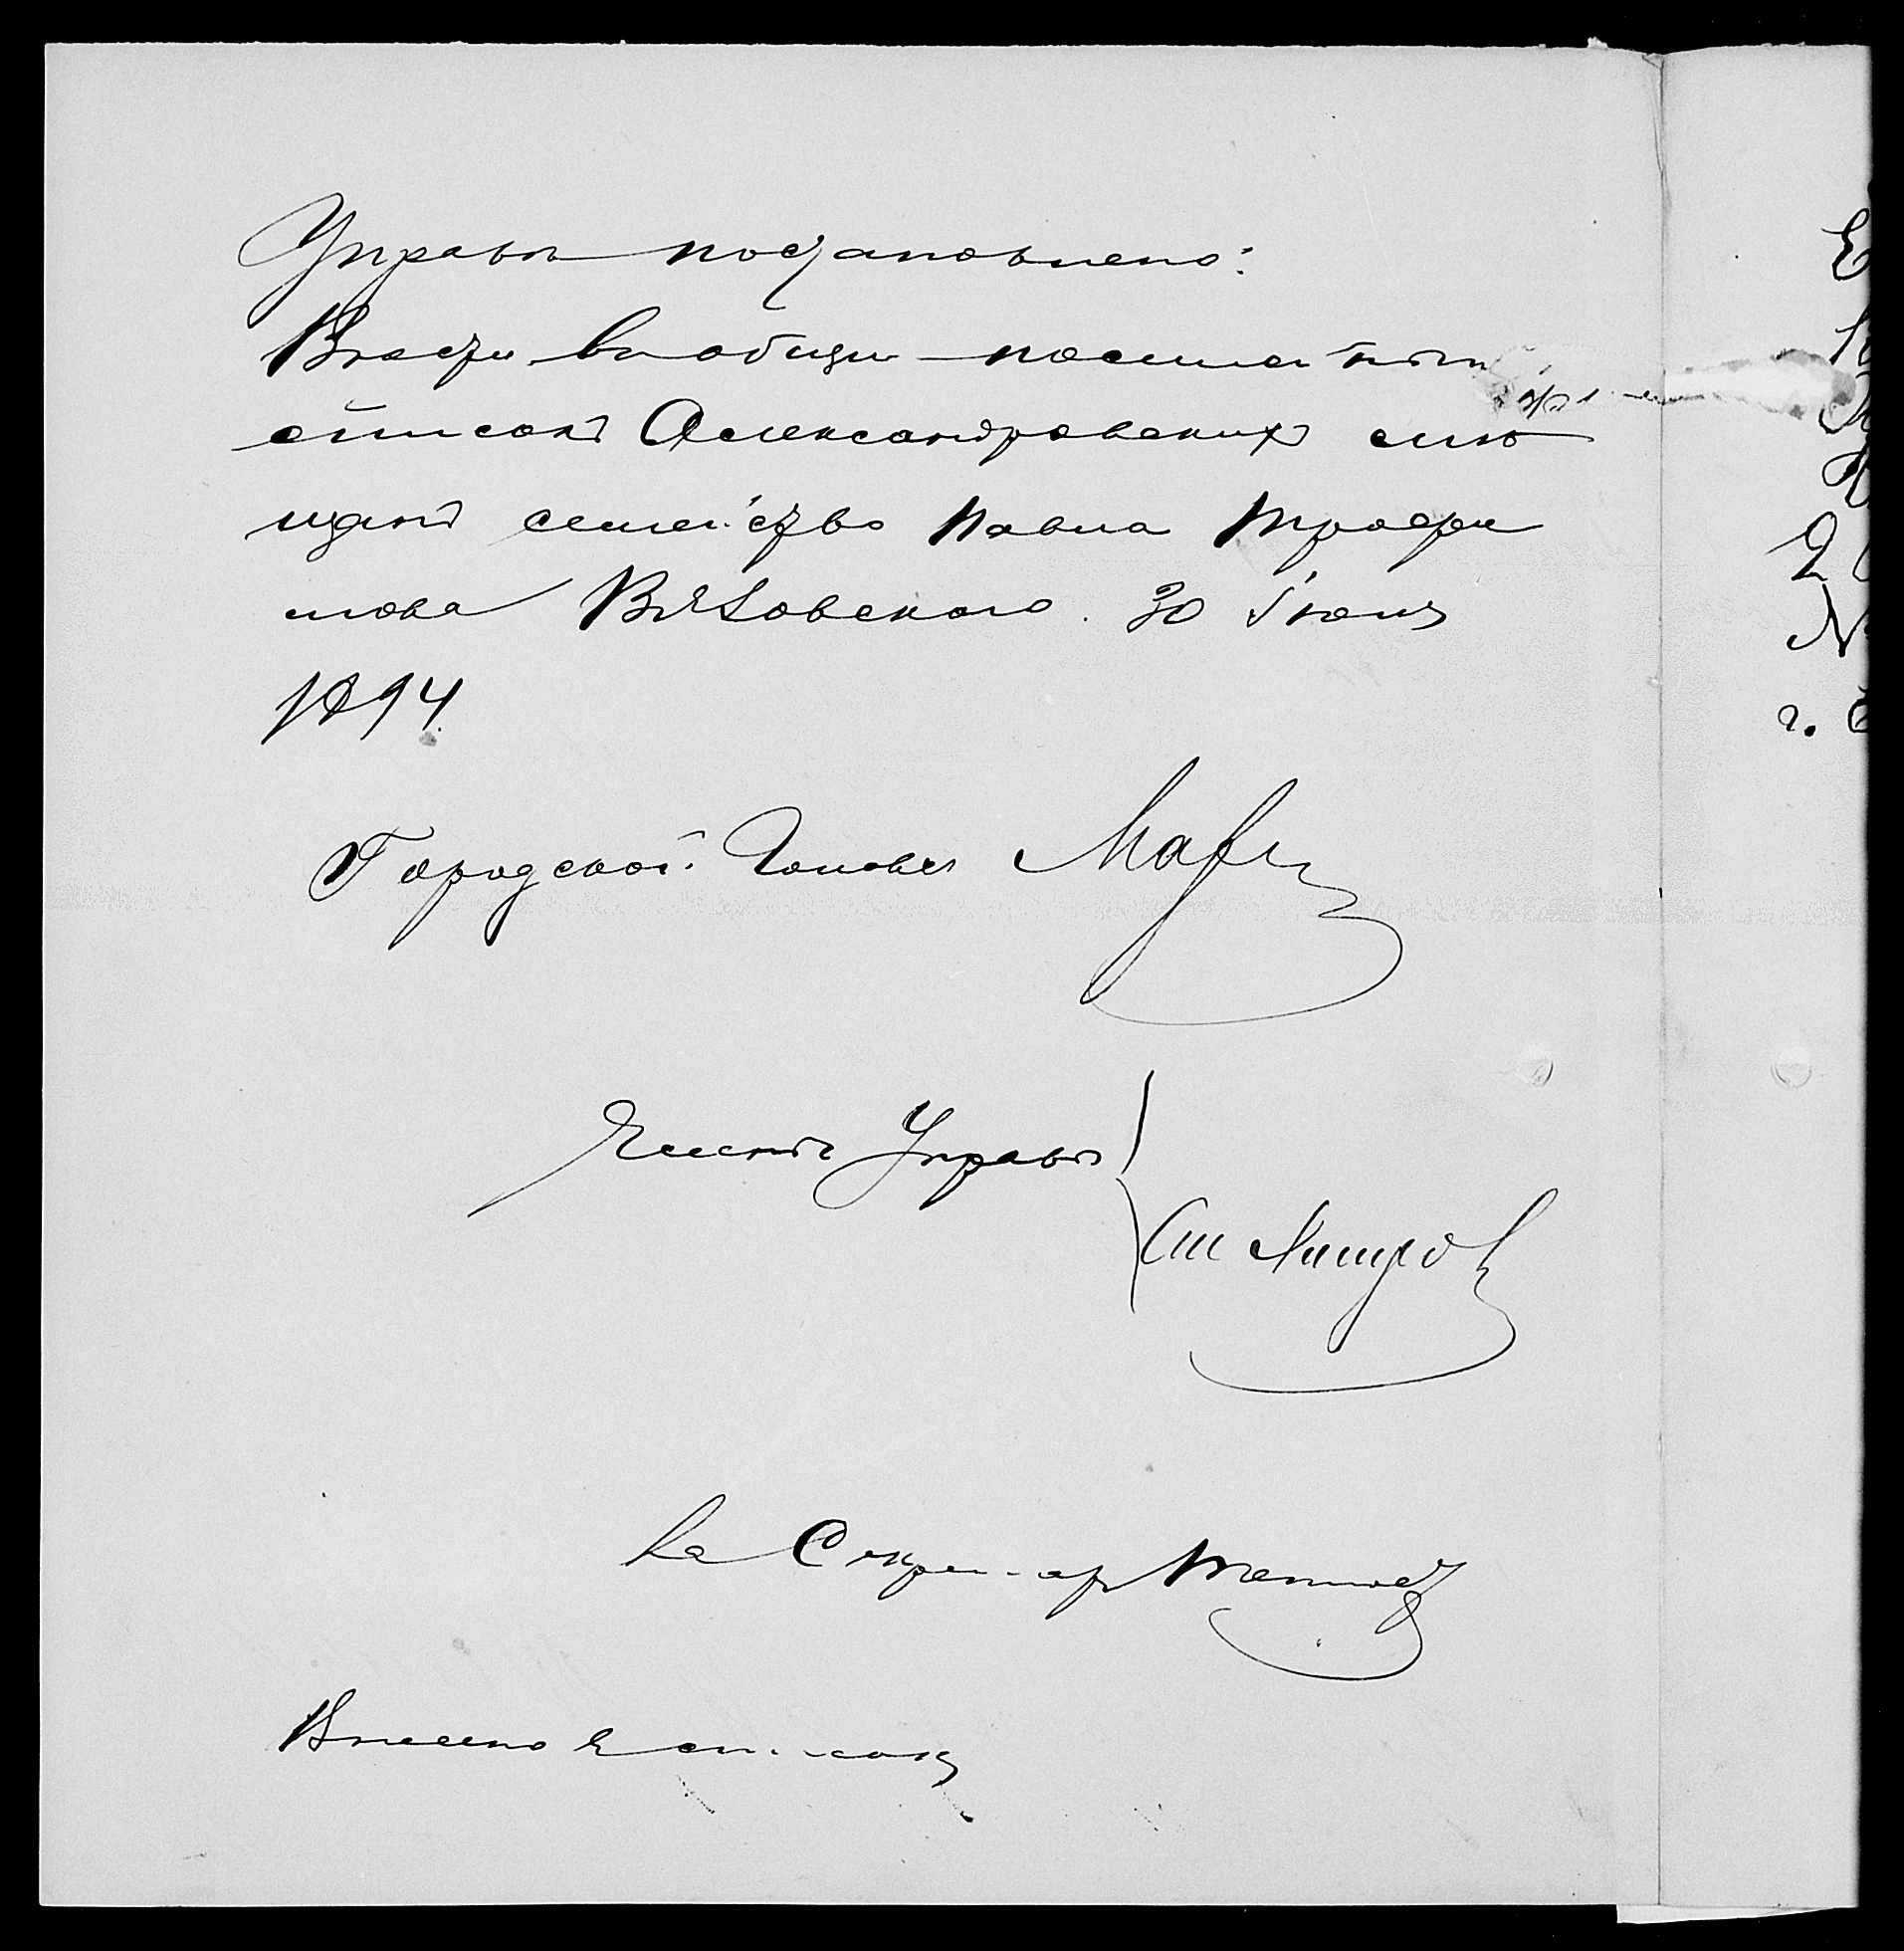 Управѣ постановлено:
Внести въ общій посемейный
списокъ Александровскихъ мѣ
щанъ семейство Павла Трофи
мова Вязовскаго. 30 Іюня
1894
Городской Голова
Членъ Управы
За Секретаря
Внесено въ списокъ